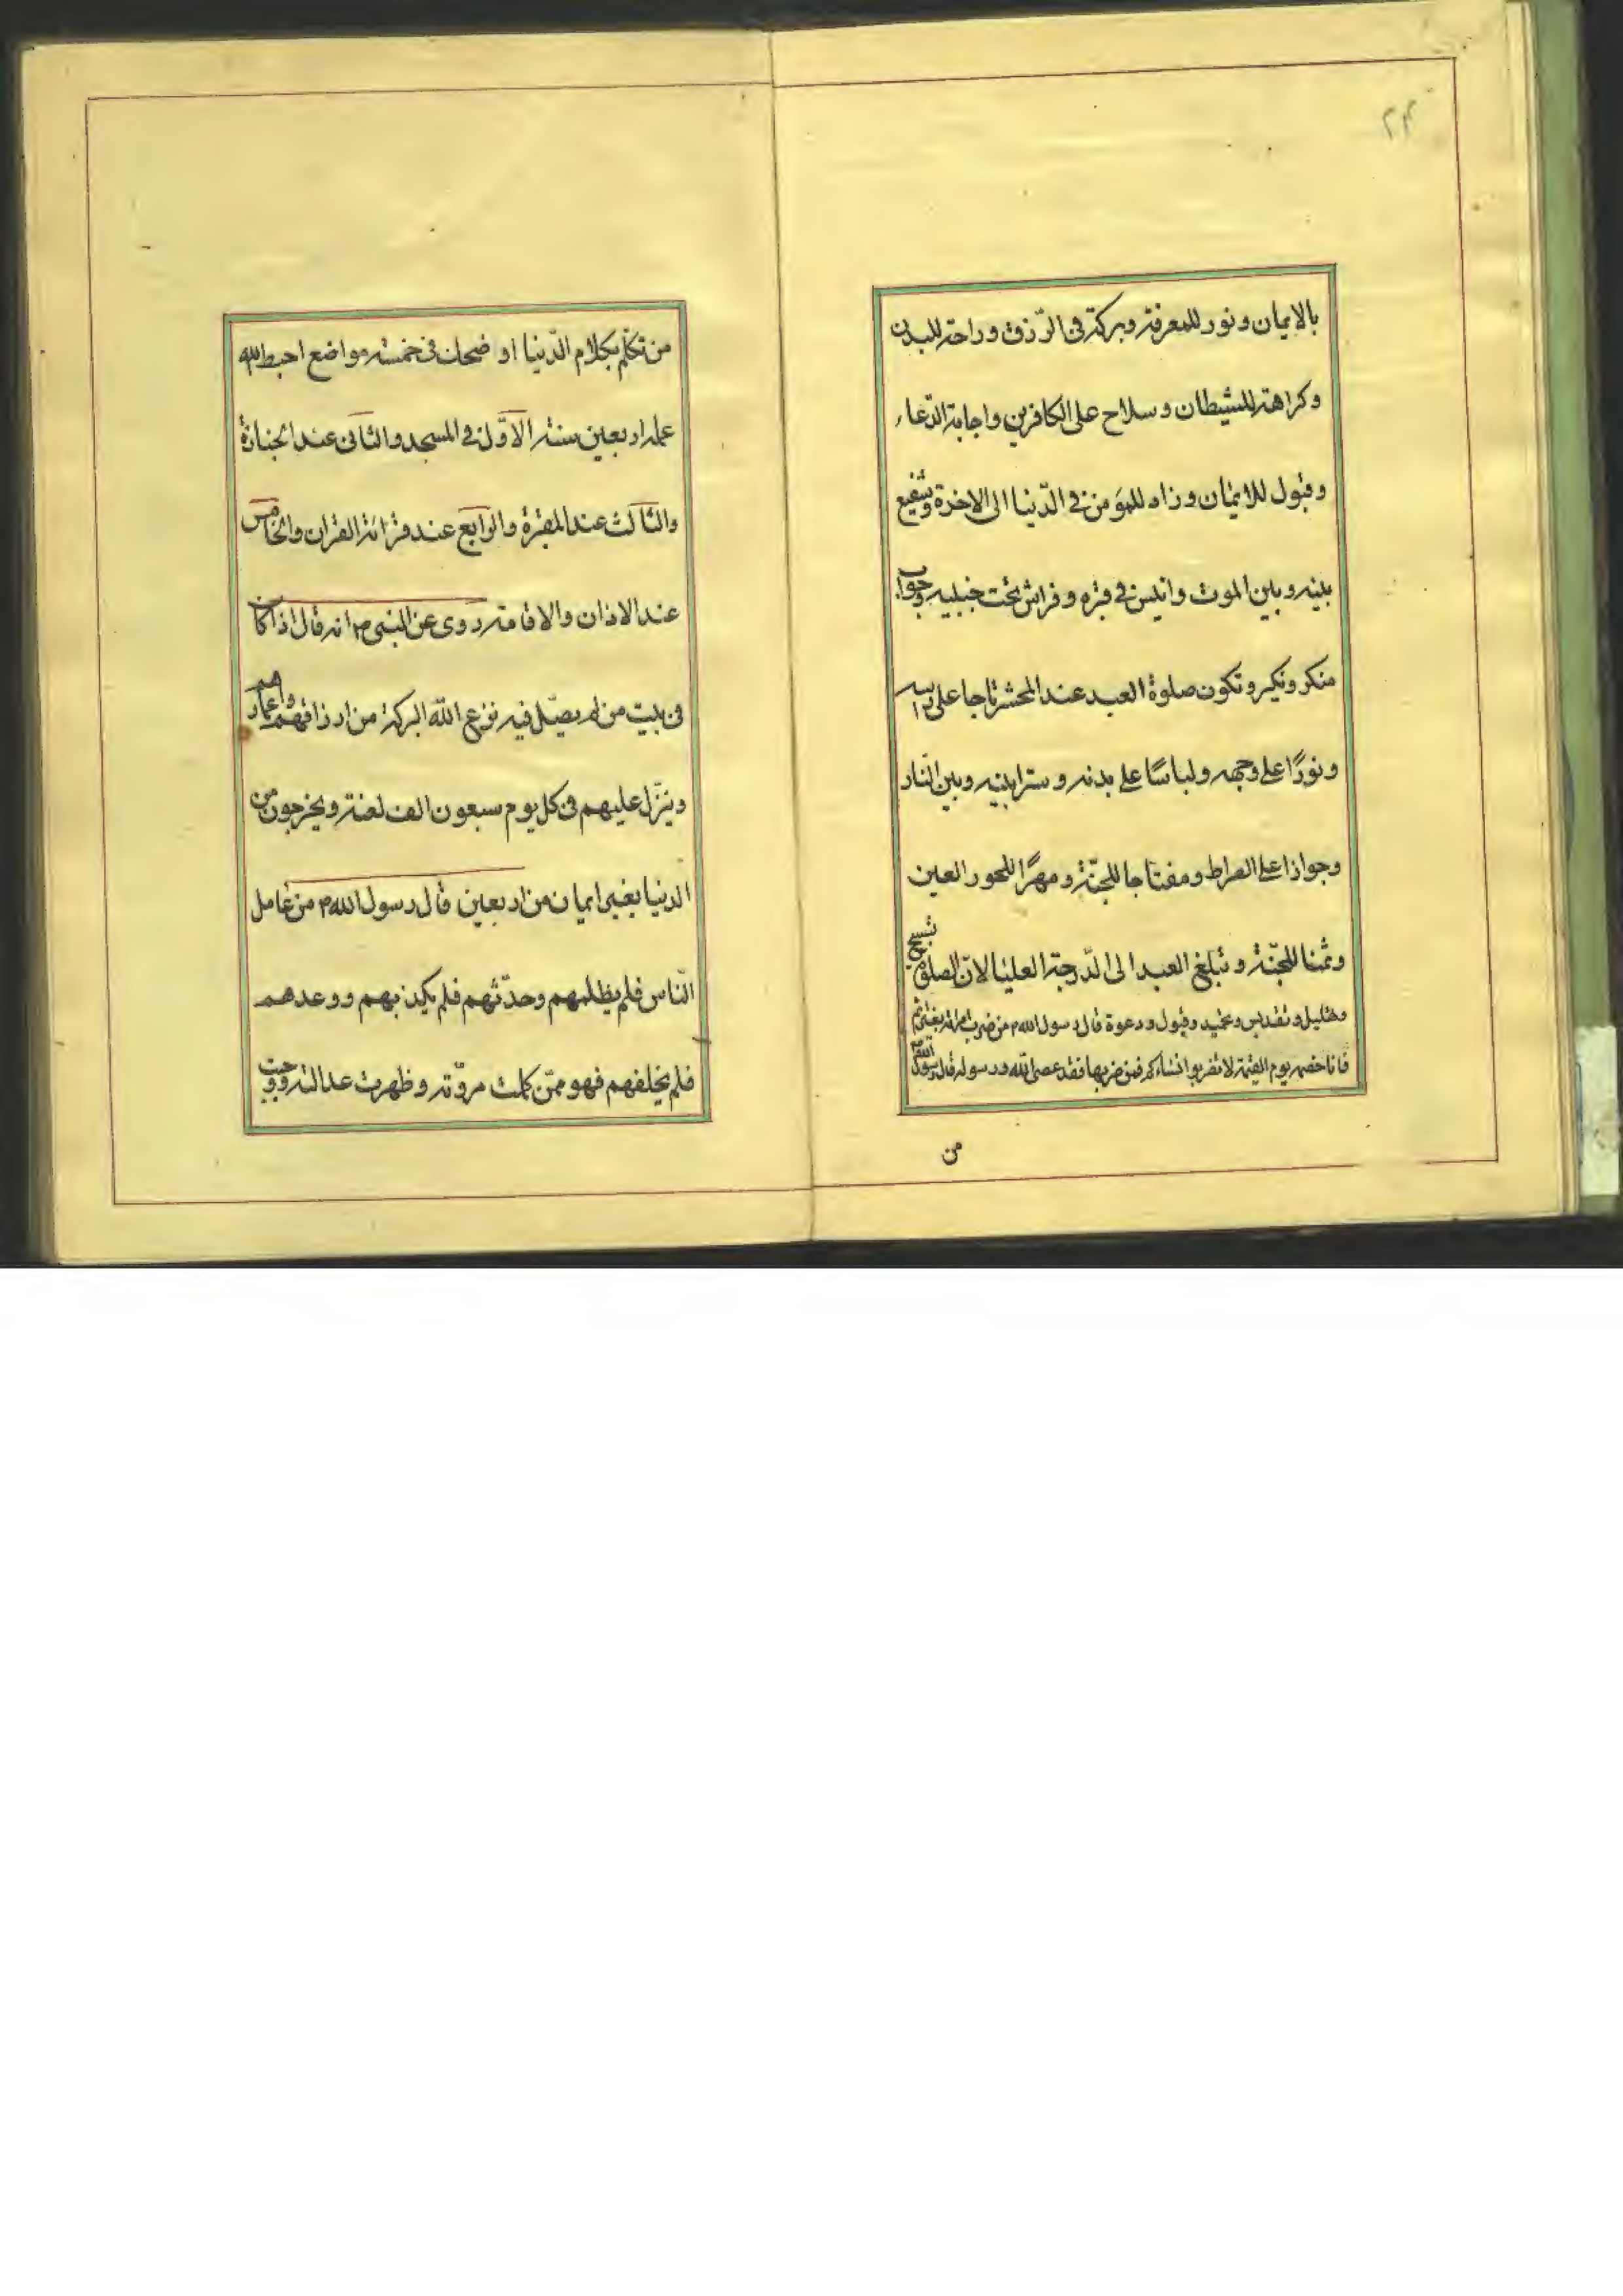 ۲۳
بالایمان و نور للمعرفة وبركة فی الرّزق و راحة للبدن
و كراهة للشیطان و سلاح علی الكافرین و اجابة الدّعاء
و قبول للایمان و زاد للمؤمن فی الدّنیا الی الاخرة و شفیع
بینه و بین الموت و انیس فی قبره و فراش تحت جنبیه و جواب
منكر و نكیر و تكون صلوة العبد عند المحشر تاجا علی راسه
و نورًا علی وجهه و لباسًا علی بدنه و سترا بینه و بین النّار
و جوازا علی الصراط و مفتاحا للجنّة و مهرًا للحور العین
و ثمنا للجنّة و تبلغ العبد الی الدّرجة العلیا لانّ الصلوة تسبیح
و تهلیل و تقدیس و تمجید و قبول و دعوة قال رسول الله ص من ضرب امراة بغیر ثم
فانا خصمه یوم القیمة لا تضربوا نساءكم فمن ضربها فقد عصی الله و رسوله قال رسول الله
من
من تكلّم بكلام الدّنیا او ضحك فی خمسة مواضع احبط الله
عمله اربعین سنة الاوّل فی المسجد و الثانی عند الجنازة
و الثالث عند المقبرة و الرابع عند قرائة القران و الخامس
عند الاذان و الاقامة روی عن النبی ص انه قال اذا كان
فی بیت من لم یصلّ فیه نزع الله البركة من ارزاقهم و اعمارهم
و ینزّل علیهم فی كل یوم سبعون الف لعنة و یخرجون من
الدنیا بغیر ایمان من اربعین قال رسول الله ص من عامل
النّاس فلم یظلمهم و حدّثهم فلم یكذبهم و وعدهم
فلم یخلفهم فهو ممّن كملت مروّته و ظهرت عدالته و وجبت